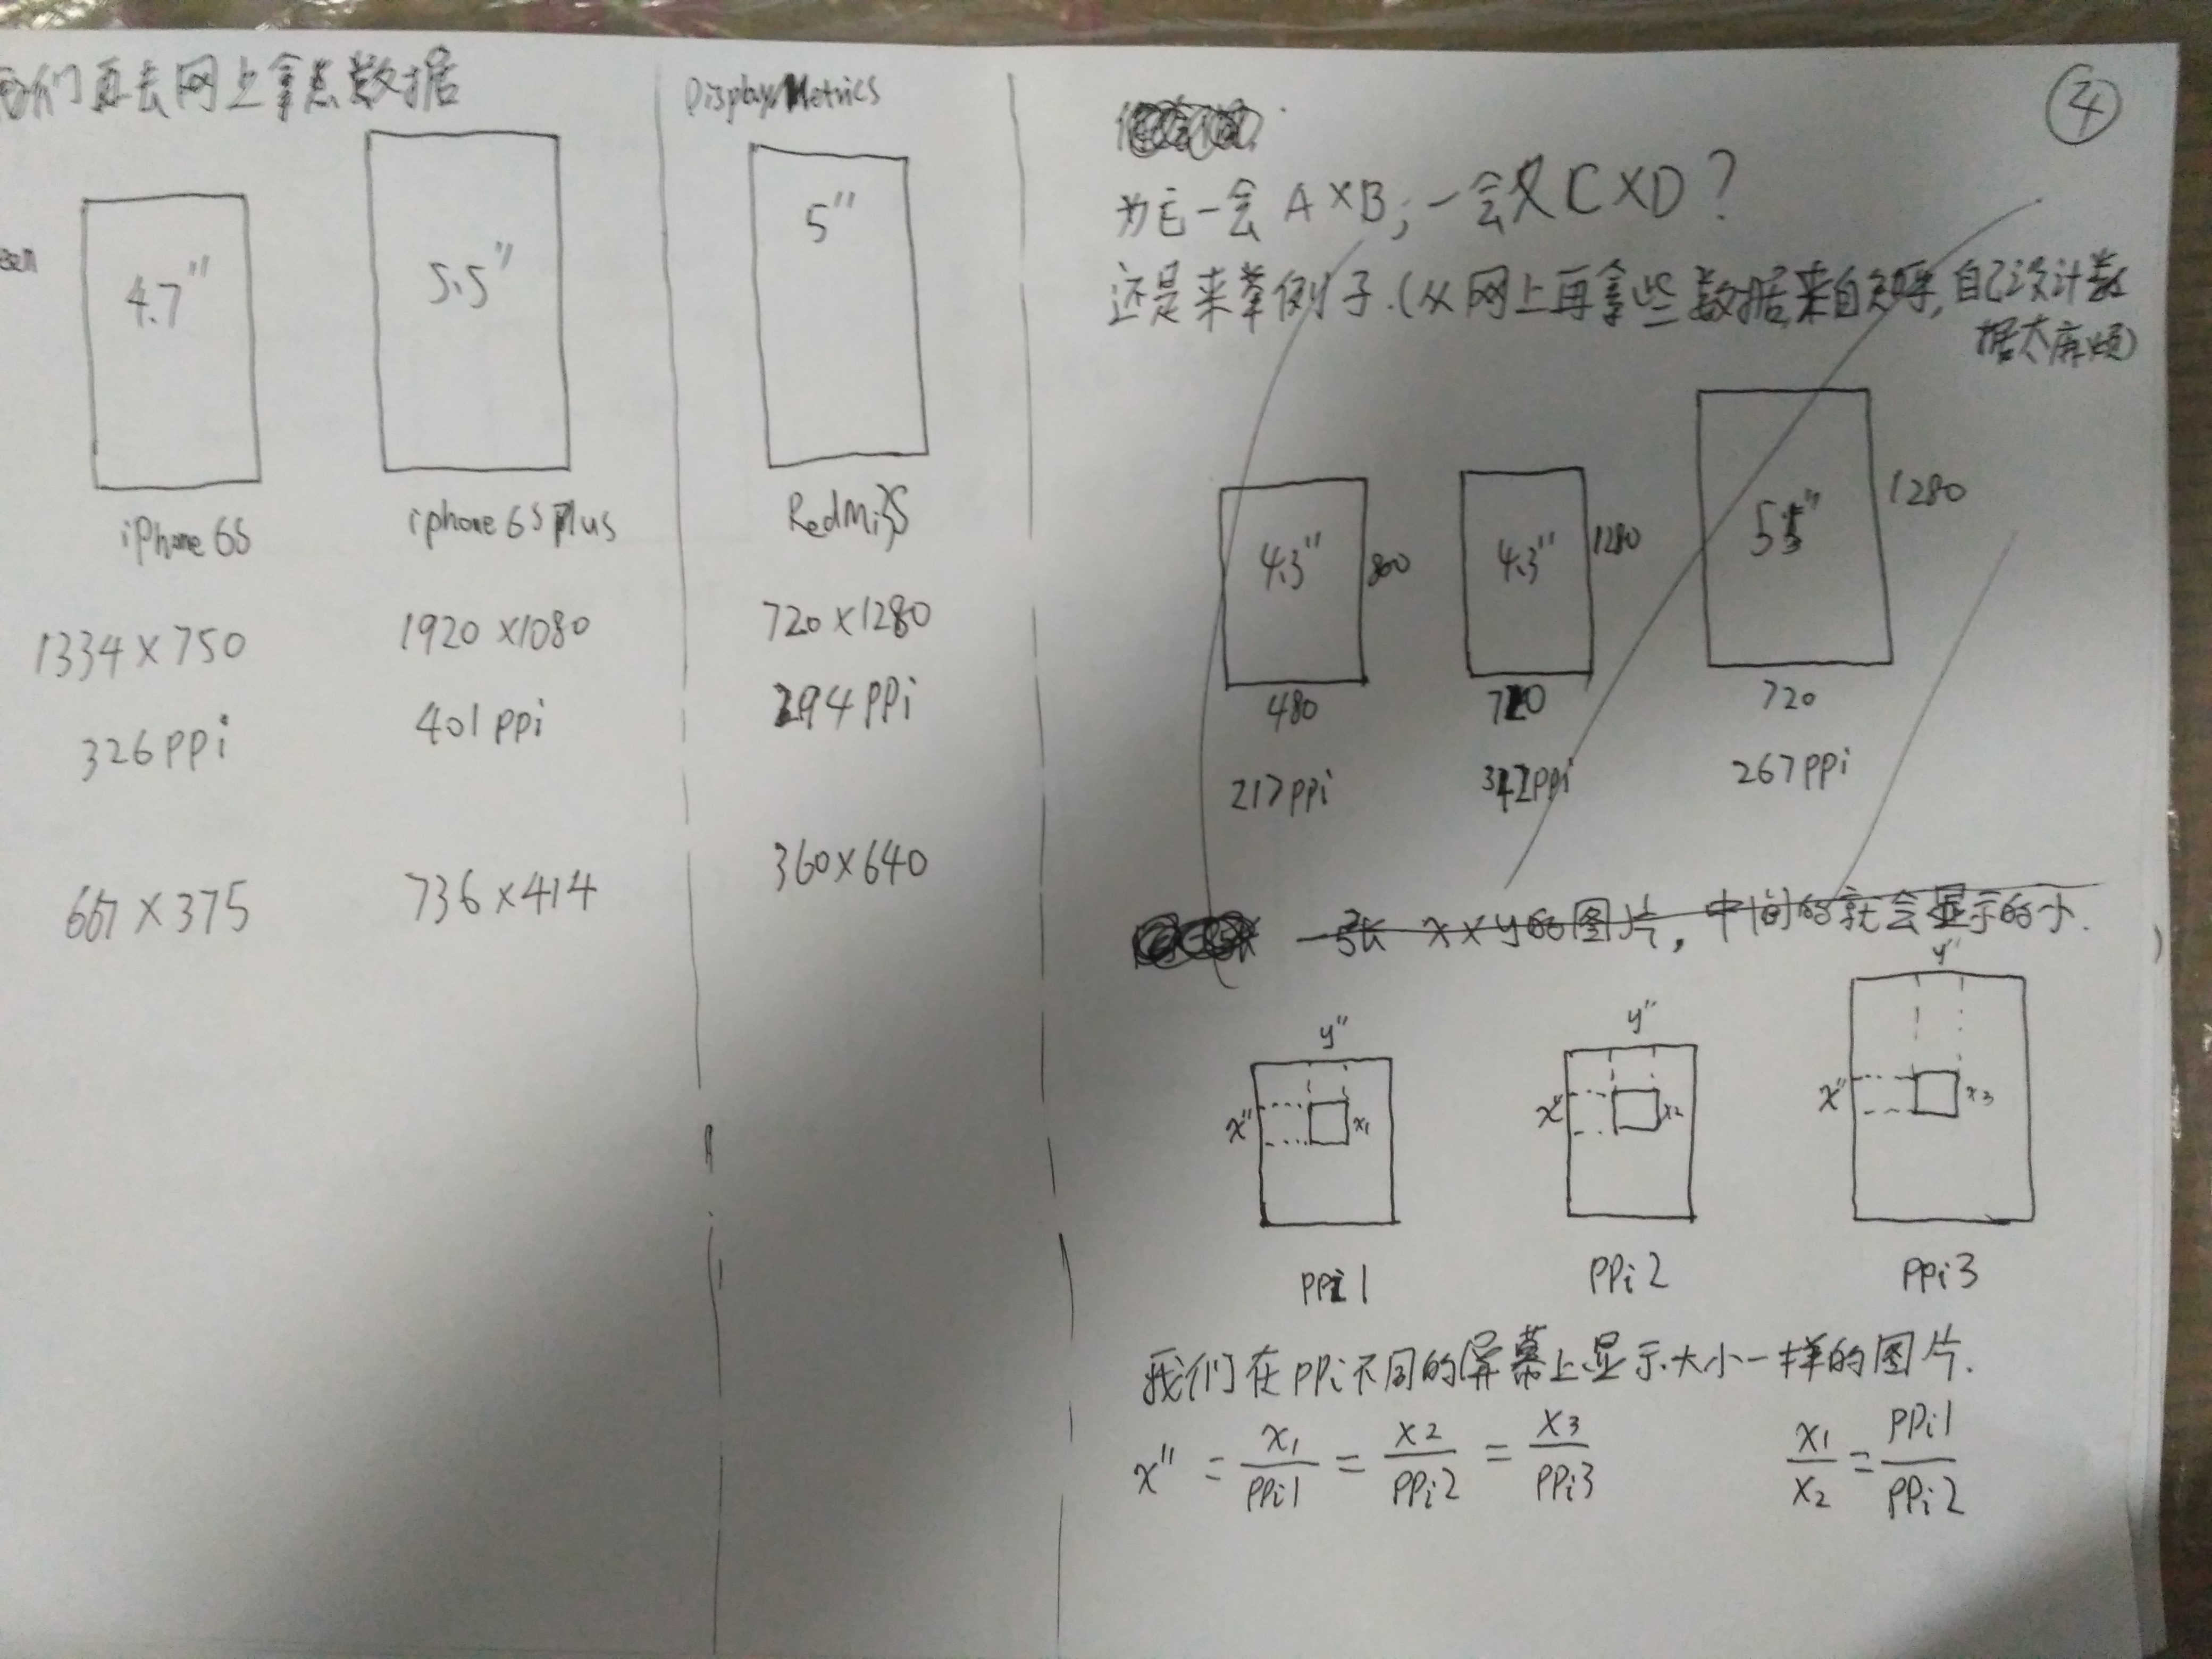 我们再去网上拿点数据
een
4.7"
iPhone 6S
1334 × 750
326 ppi
667 × 375
5.5"
iphone 6S Plus
1920 × 1080
401 ppi
736 × 414
DisplayMetrics
5"
RedMi3S
720 × 1280
294 ppi
360 × 640
④
一会 A×B; 一会又 C×D?
还是来举例子.(从网上再拿些数据来自 自己设计数
据太麻烦)
4.3"
800
480
217ppi
4.3"
1280
720
342ppi
1280
720
267ppi
一张 x×y的图片, 中间的就会显示的小.
y"
x"
x₁
ppi1
y"
x"
x2
ppi2
y"
x"
x3
ppi3
我们在ppi不同的屏幕上显示大小一样的图片.
x" = x₁/ppi1 = x2/ppi2 = x3/ppi3
x1/x2 = ppi1/ppi2